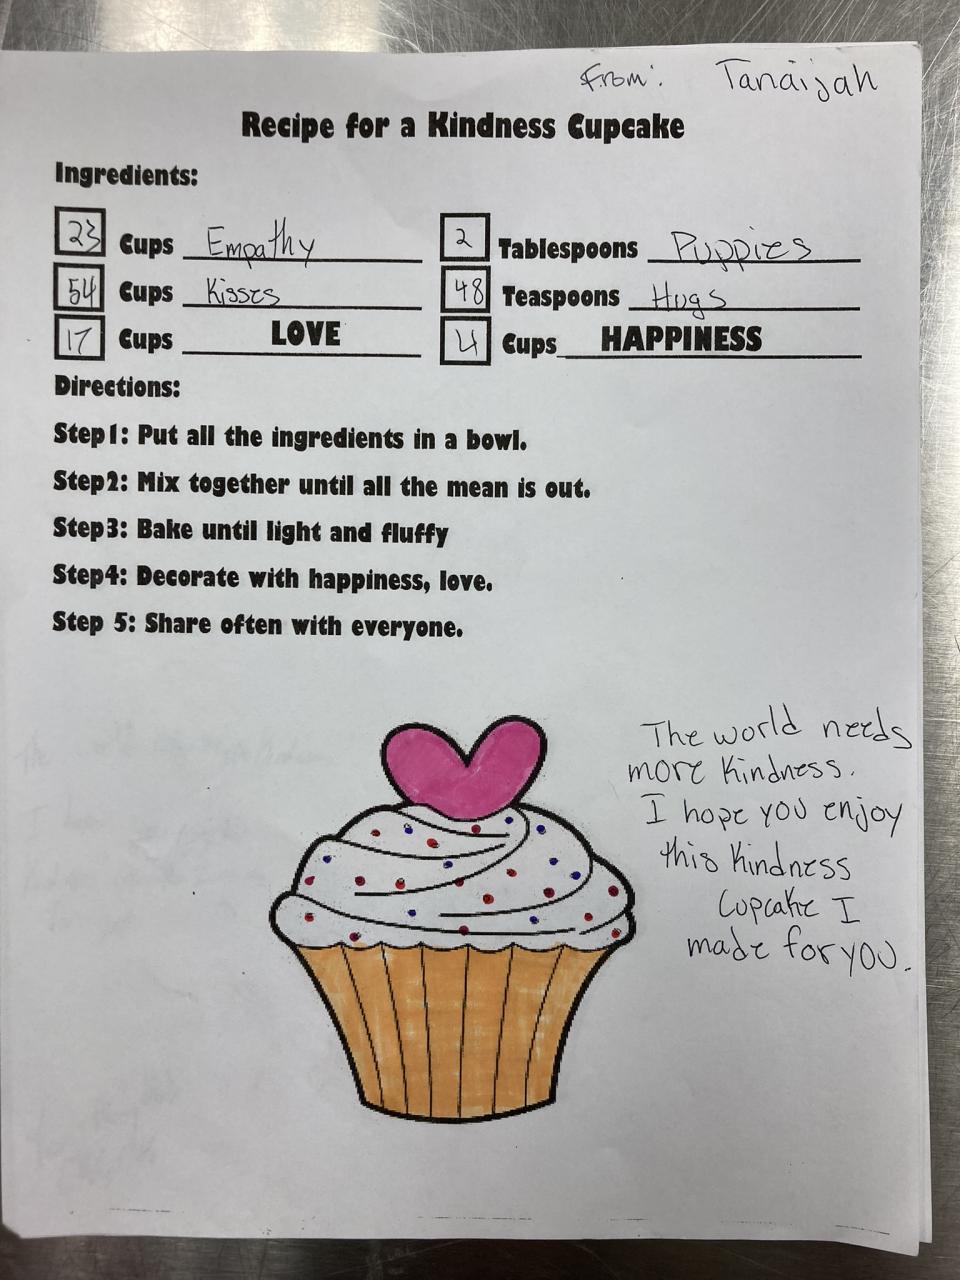 From: Tanaijah
Recipe for a Kindness Cupcake
Ingredients:
23 Cups Empathy 2 Tablespoons Puppies
54 Cups Kisses 48 Teaspoons Hugs
17 Cups LOVE 4 Cups HAPPINESS
Directions:
Step1: Put all the ingredients in a bowl.
Step2: Mix together until all the mean is out.
Step3: Bake until light and fluffy
Step4: Decorate with happiness, love.
Step 5: Share often with everyone.
The world needs
more Kindness.
I hope you enjoy
this Kindness
Cupcake I
made for you.